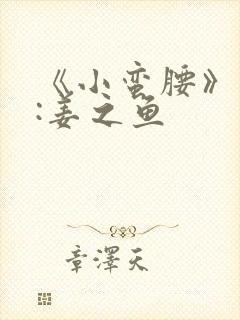 《小蛮腰》
:姜之鱼
章澤天